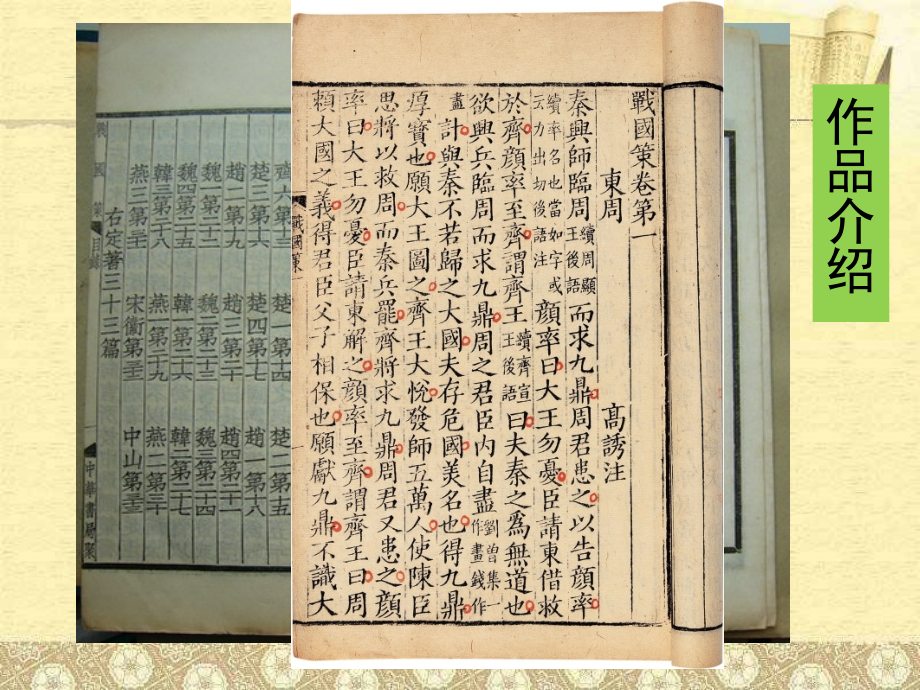 作品介绍
戰國策卷第一
東周 高誘注
秦興師臨周續周顯王後語而求九鼎周君患之以告顔率
續率名也當如字或云力出切後語注顔率曰大王勿憂臣請東借救
於齊顔率至齊謂齊王續齊宣王後語曰夫秦之爲無道也
欲興兵臨周而求九鼎周之君臣内自盡劉曾集一作畫錢作
畫計與秦不若歸之大國夫存危國美名也得九鼎
厚寳也願大王圖之齊王大悅發師五萬人使陳臣
思將以救周而秦兵罷齊將求九鼎周君又患之顔
率曰大王勿憂臣請東解之顔率至齊謂齊王曰周
賴大國之義得君臣父子相保也願獻九鼎不識大
戰國策一
齊六第十三 楚一第十四 楚二第十五
楚三第十六 楚四第十七 趙一第十八
趙二第十九 趙三第二十 趙四第二十一
魏一第二十二 魏二第二十三 魏三第二十四
魏四第二十五 韓一第二十六 韓二第二十七
韓三第二十八 燕一第二十九 燕二第三十
燕三第三十一 宋衞第三十二 中山第三十三
右定著三十三篇
戰國策 目錄 中華書局聚